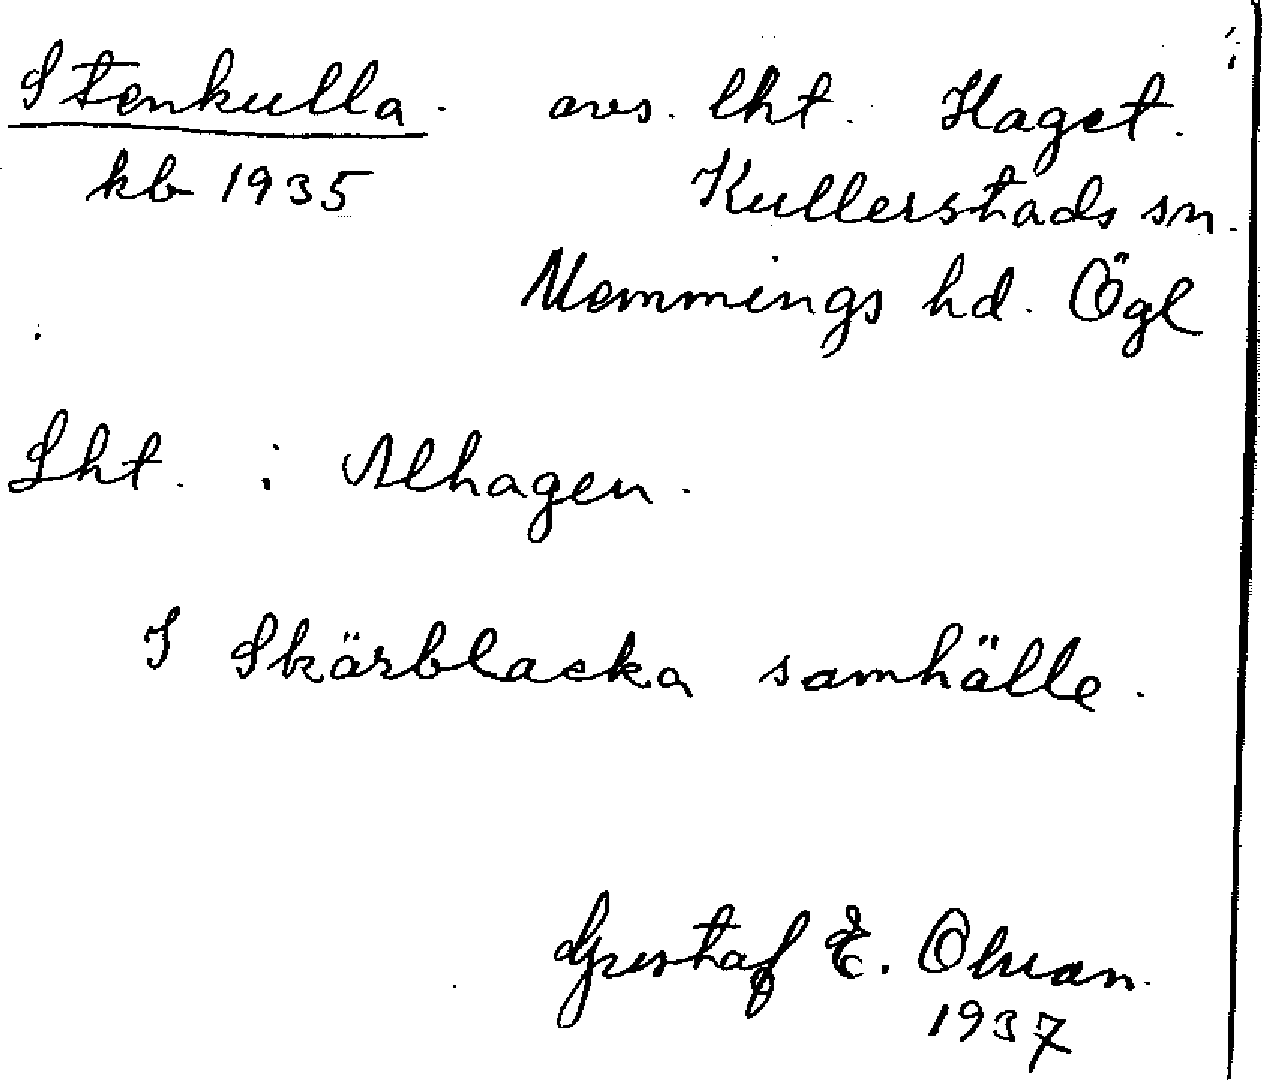 Stenkulla. avs. lht. Haget.
kb 1935 Kullerstads sn.
Memmings hd. Ögl
Lht. i Alhagen.
I Skärblacka samhälle.
Gustaf E. Olsson.
1937